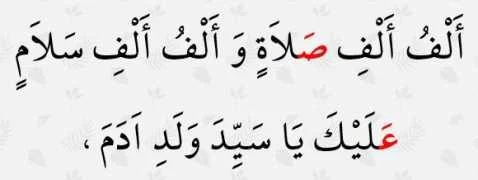 أَلْفُ أَلْفِ صَلاَةٍ وَ أَلْفُ أَلْفِ سَلاَمٍ
عَلَيْكَ يَا سَيِّدَ وَلَدِ اَدَمَ ،